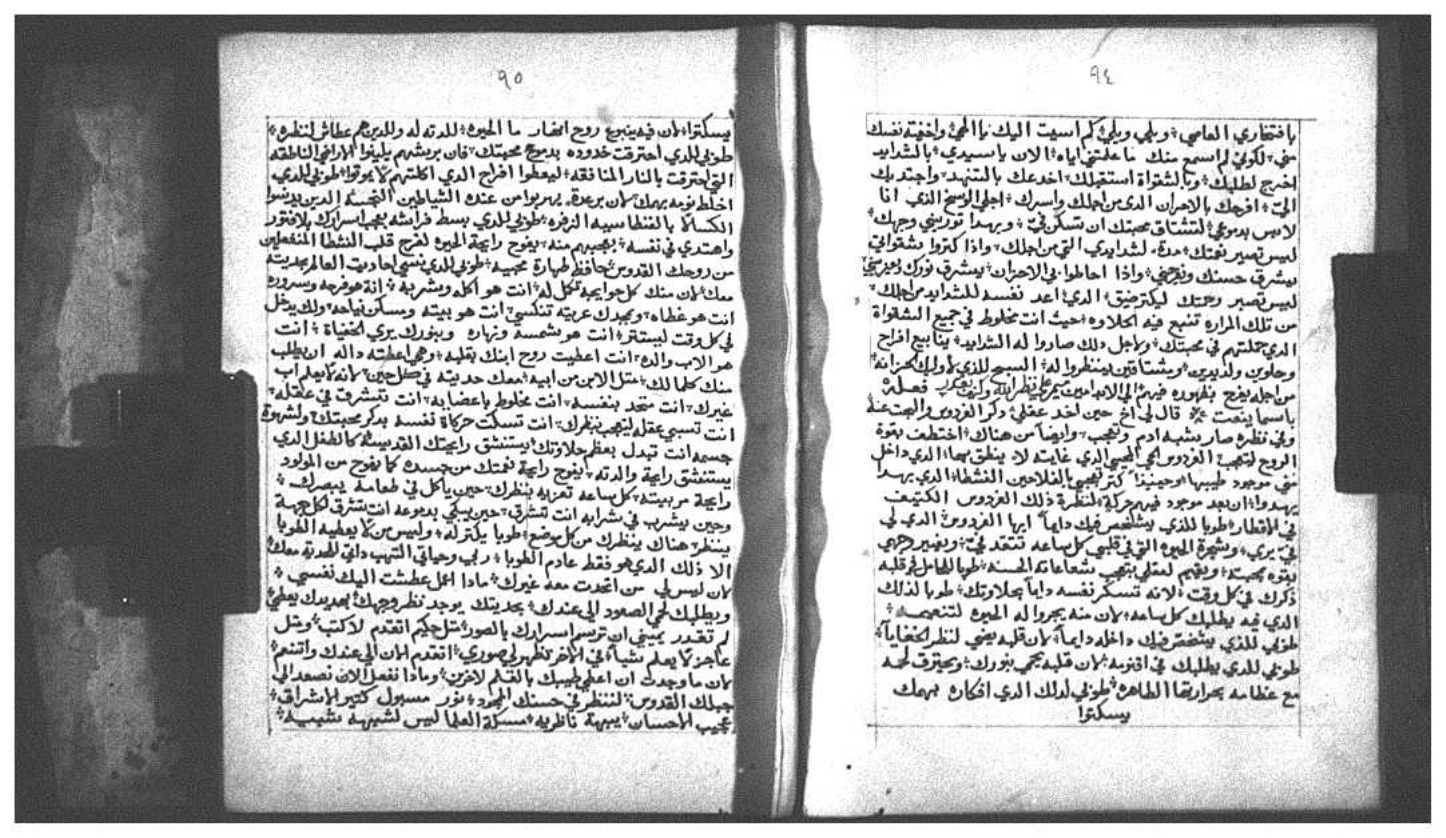 ٩٤
يا فتخاري العاصي وبلي وبلي كم اسيت اليك يا الهي واخفيته نفسك
مني لكوني لم اسمع منك ما علمتني اياه الان يا سيدي بالشدايد
اخرج لطلبك وبالشقواة استقبلك اخدعك بالتنهد واجتدبك
الي افرحك بالاحزان الدى من اجلك واسرك اجلي الوسخ الذي انا
لابس بدموعي لتشتاق محبتك ان تسكن في وبهدا توريني وجهك
ليس تصير نعمتك مدة لشدايدي التي من اجلك واذا كتروا شقواتي
يشرق حسنك ويفرحني واذا احاطوا بي الاحزان يشرق نورك
ليس تصبر رحمتك ليكتر ضيق الدي اعد نفسه للشدايد من اجلك
من تلك المراره تنبع فيه الحلاوه حيث انت مخلوط في جميع الشقواة
الدي حملتهم في محبتك ولاجل دلك صاروا له الشدايد ينابيع افراح
وحلوين ولديدين ومشتاقين ينتظروا له السبح للذي لاوليك الحزانه
من اجله يفرح بظهوره فيهم الى الابد امين
باسما ينعت قال لي اخ حين اخد عقلي دكر الفردوس والبحت عنه
وفي نظره صار يشبه ادم ويتعجب وايضا من هناك اختطف بقوة
الروح لتعجب الفردوس الحي المحيي الدي غايته لا ينطق بها الدي داخل
مني موجود طيبها وحينيدا كتر تعجبي بالفلاحين النشطا الدي بهدا
يهدوا ان بعد موجود فيهم حركة لنظرة ذلك الفردوس الكتيف
في الاقطار طوبا للدي يشخص فيك دايما ايها الفردوس الدي لي
في يري وبشجرة الحيوه التي في قلبي كل ساعه تتقد في ويغير وجهي
بقوه محبته ويقيم لعقلي بتعجب شعاعاته الحسنه طوبا للحامل في قلبه
ذكرك في كل وقت لانه تسكر نفسه دايما بحلاوتك طوبا لذلك
الدي فيه يطلبك كل ساعه لان منه يجروا له الحيوه لتنعيمه
طوبي للذي يشخص فيك داخله دايما لان قلبه يضي لنظر الخفايا
طوبي للدي يطلبك في اقنومه لان قلبه يحمي بنورك ويحترق لحمه
مع عظامه بحرارتها الطاهره طوبي لدلك الدي افكاره بهمك
يسكتوا
٩٥
يسكتوا لان فيه ينبوع روح انهار ما الحيوه للدته له وللدين هم عطاش لنظره
طوبي للدي احترقت خدوده بدموع محبتك فان برشهم يلينوا الاراضي الناطقه
التي احترقت بالنار المنافقه ليعطوا افراح الدي اكلتهم لا يموتوا طوبي للدي
اخلط نومه بهمك لان برعدة يهربوا من عنده الشياطين النجسه الدين يدنسوا
الكسالا بالغنطاسيه الزفره طوبي للدي بسط فراشه بعجب اسرارك بلا فتور
واهتدي في نفسه بعجبهم منه يفوح رايحة الحيوة لفرح قلب النشطا المنفعلين
من روحك القدوس حافظ طهارة محبيه طوبي للدي نسي احاديت العالم بحديته
معك لان منك كل حوايجه تكل له انت هو اكله ومشربه انه هو فرحه وسروره
انت هو غطاه وبمجدك عريته تنكسي انت هو بيته ومسكن نياحه ولك يدخل
في كل وقت ليستتر انت هو شمسه ونهاره وبنورك يري الخفياة انت
هو الاب والده انت اعطيت روح ابنك بقلبه وهي اعطته داله ان يطلب
منك كلما لك متل الابن من ابيه معك حديته في كل حين لانه لا يعلم اب
غيرك انت متحد بنفسه انت مخلوط باعضايه انت تشرق في عقله
انت تسبي عقله ليتعجب بنظرك انت تسكت حركاة نفسه بدكر محبتك ولشهوة
جسمه انت تبدل بعظم حلاوتك يستنشق رايحتك القديسه كالطفل الدي
يستنشق رايحة والدته يفوح رايحة نعمتك من جسده كما يفوح من المولود
رايحة مربيته كل ساعه تعزيه بنظرك حين ياكل في طعامه يبصرك
وحين يشرب في شرابه انت تشرق حين يبكي بدموعه انت تشرق لكل جهة
ينظر هناك ينظرك من كل موضع طوبا يكتر له وليس من لا يعطيه الطوبا
الا ذلك الدي هو فقط عادم الطوبا ربي وحياتي التهب داتي للحدته معك
لان ليس لي من اتحدت معه غيرك مادا اعمل عطشت اليك نفسي
وبطلبك لحي الصعود الى عندك بحديتك يوجد نظر وجهك بعديدك يعطي
لم تقدر يميني ان ترسم اسرارك بالصور متل حكيم اتقدم لاكتب ومتل
عاجز لا يعلم شيا في الاخر تظهر لي صوري اتقدم الان الى عندك واتنعم
لان ما وجدت ان اعلي طيبك بالقلم لاخرين ومادا نفعل الان نصعد الي
جبلك القدوس لننظر في حسنك المجد نور مسبول كتير الاشراق
عجيب الاحسان يبهته ناظريه مسكة العلما ليس لشبهه شبيه